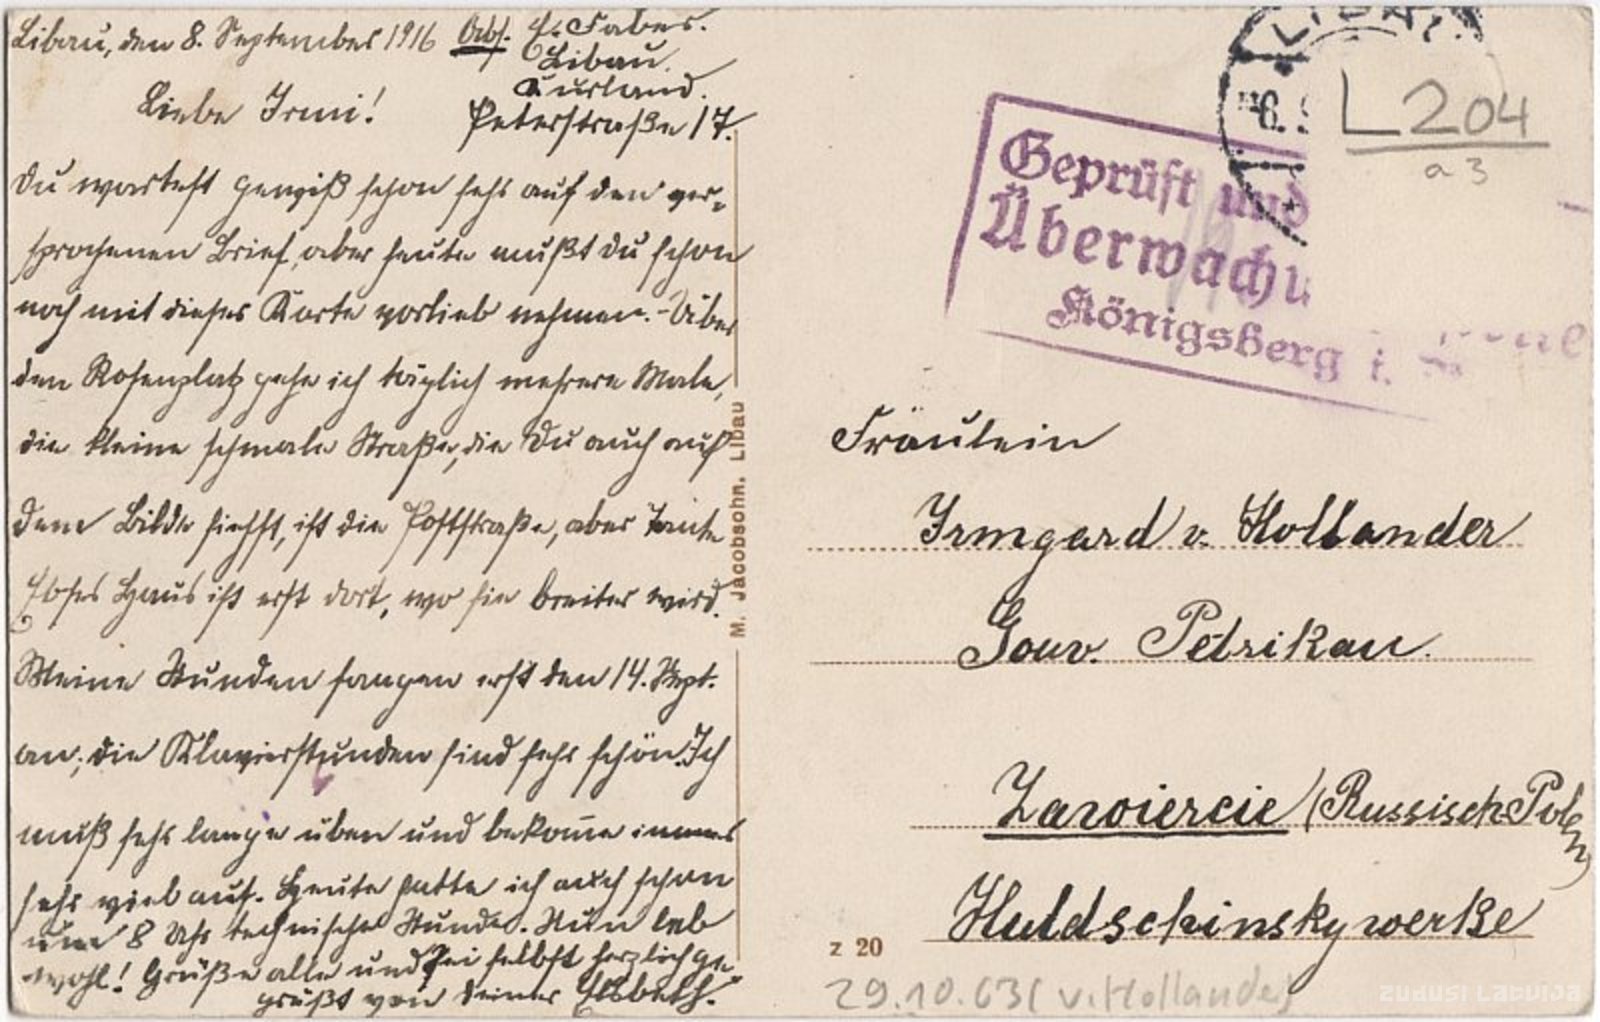 Libau, den 8. September 1916
Abs. E. Faber.
Libau.
Kurland.
Peterstraße 17.
Liebe Irmi!
Du wartest gewiß schon sehr auf den ver-
sprochenen Brief, aber heute mußt Du schon
noch mit dieser Karte vorlieb nehmen. - Über
den Rosenplatz gehe ich täglich mehrere Male,
die kleine schmale Straße, die Du auch auf
dem Bilde siehst, ist die Poststraße, aber Tante
Elses Haus ist erst dort, wo sie breiter wird.
Meine Stunden fangen erst den 14. Sept.
an; die Klavierstunden sind sehr schön. Ich
muß sehr lange üben und bekomme immer
sehr viel auf. Heute hatte ich auch schon
um 8 Uhr technische Stunde. Nun leb
wohl! Grüße alle und sei selbst herzlich ge-
grüßt von Deiner Elsbeth.
M. Jacobsohn. Libau
LIBAU
L 204
a 3
Geprüft und
Überwachu
Königsberg i.
Fräulein
Irmgard v. Hollander
Gouv. Petrikau.
Zawiercie (Russisch-Polen)
Huldschinskywerke
z 20
29.10.63 (v. Hollander)
zudusi Latvija